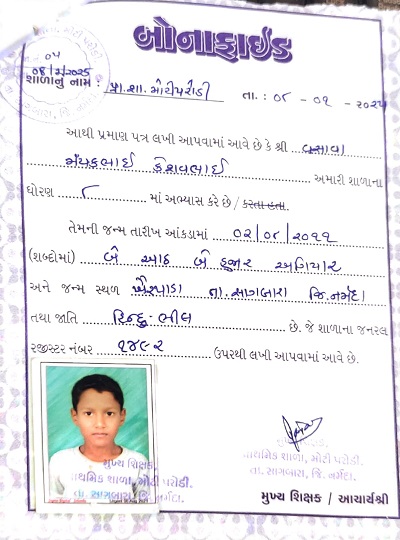 બોનાફાઈડ
૦૫
૦૪/૨/૨૦૨૫
શાળાનું નામ : પ્રા.શા. મોટીપરોડી તા. : ૦૮ - ૦૧ - ૨૦૨૫
આથી પ્રમાણ પત્ર લખી આપવામાં આવે છે કે શ્રી વસાવા
મયંકભાઈ કેશવભાઈ અમારી શાળાના
ધોરણ ૮ માં અભ્યાસ કરે છે / કરતા હતા.
તેમની જન્મ તારીખ આંકડામાં ૦૨/૦૮/૨૦૧૧
(શબ્દોમાં) બે આઠ બે હજાર અગિયાર
અને જન્મ સ્થળ ખૈરપાડા તા. સાગબારા જિ. નર્મદા
તથા જાતિ હિન્દુ - ભીલ છે. જે શાળાના જનરલ
રજીસ્ટર નંબર ૧૪૯૨ ઉપરથી લખી આપવામાં આવે છે.
મુખ્ય શિક્ષક
પ્રાથમિક શાળા, મોટી પરોડી.
તા. સાગબારા, જિ. નર્મદા.
પ્રાથમિક શાળા, મોટી પરોડી
તા. સાગબારા, જિ. નર્મદા
મુખ્ય શિક્ષક / આચાર્યશ્રી